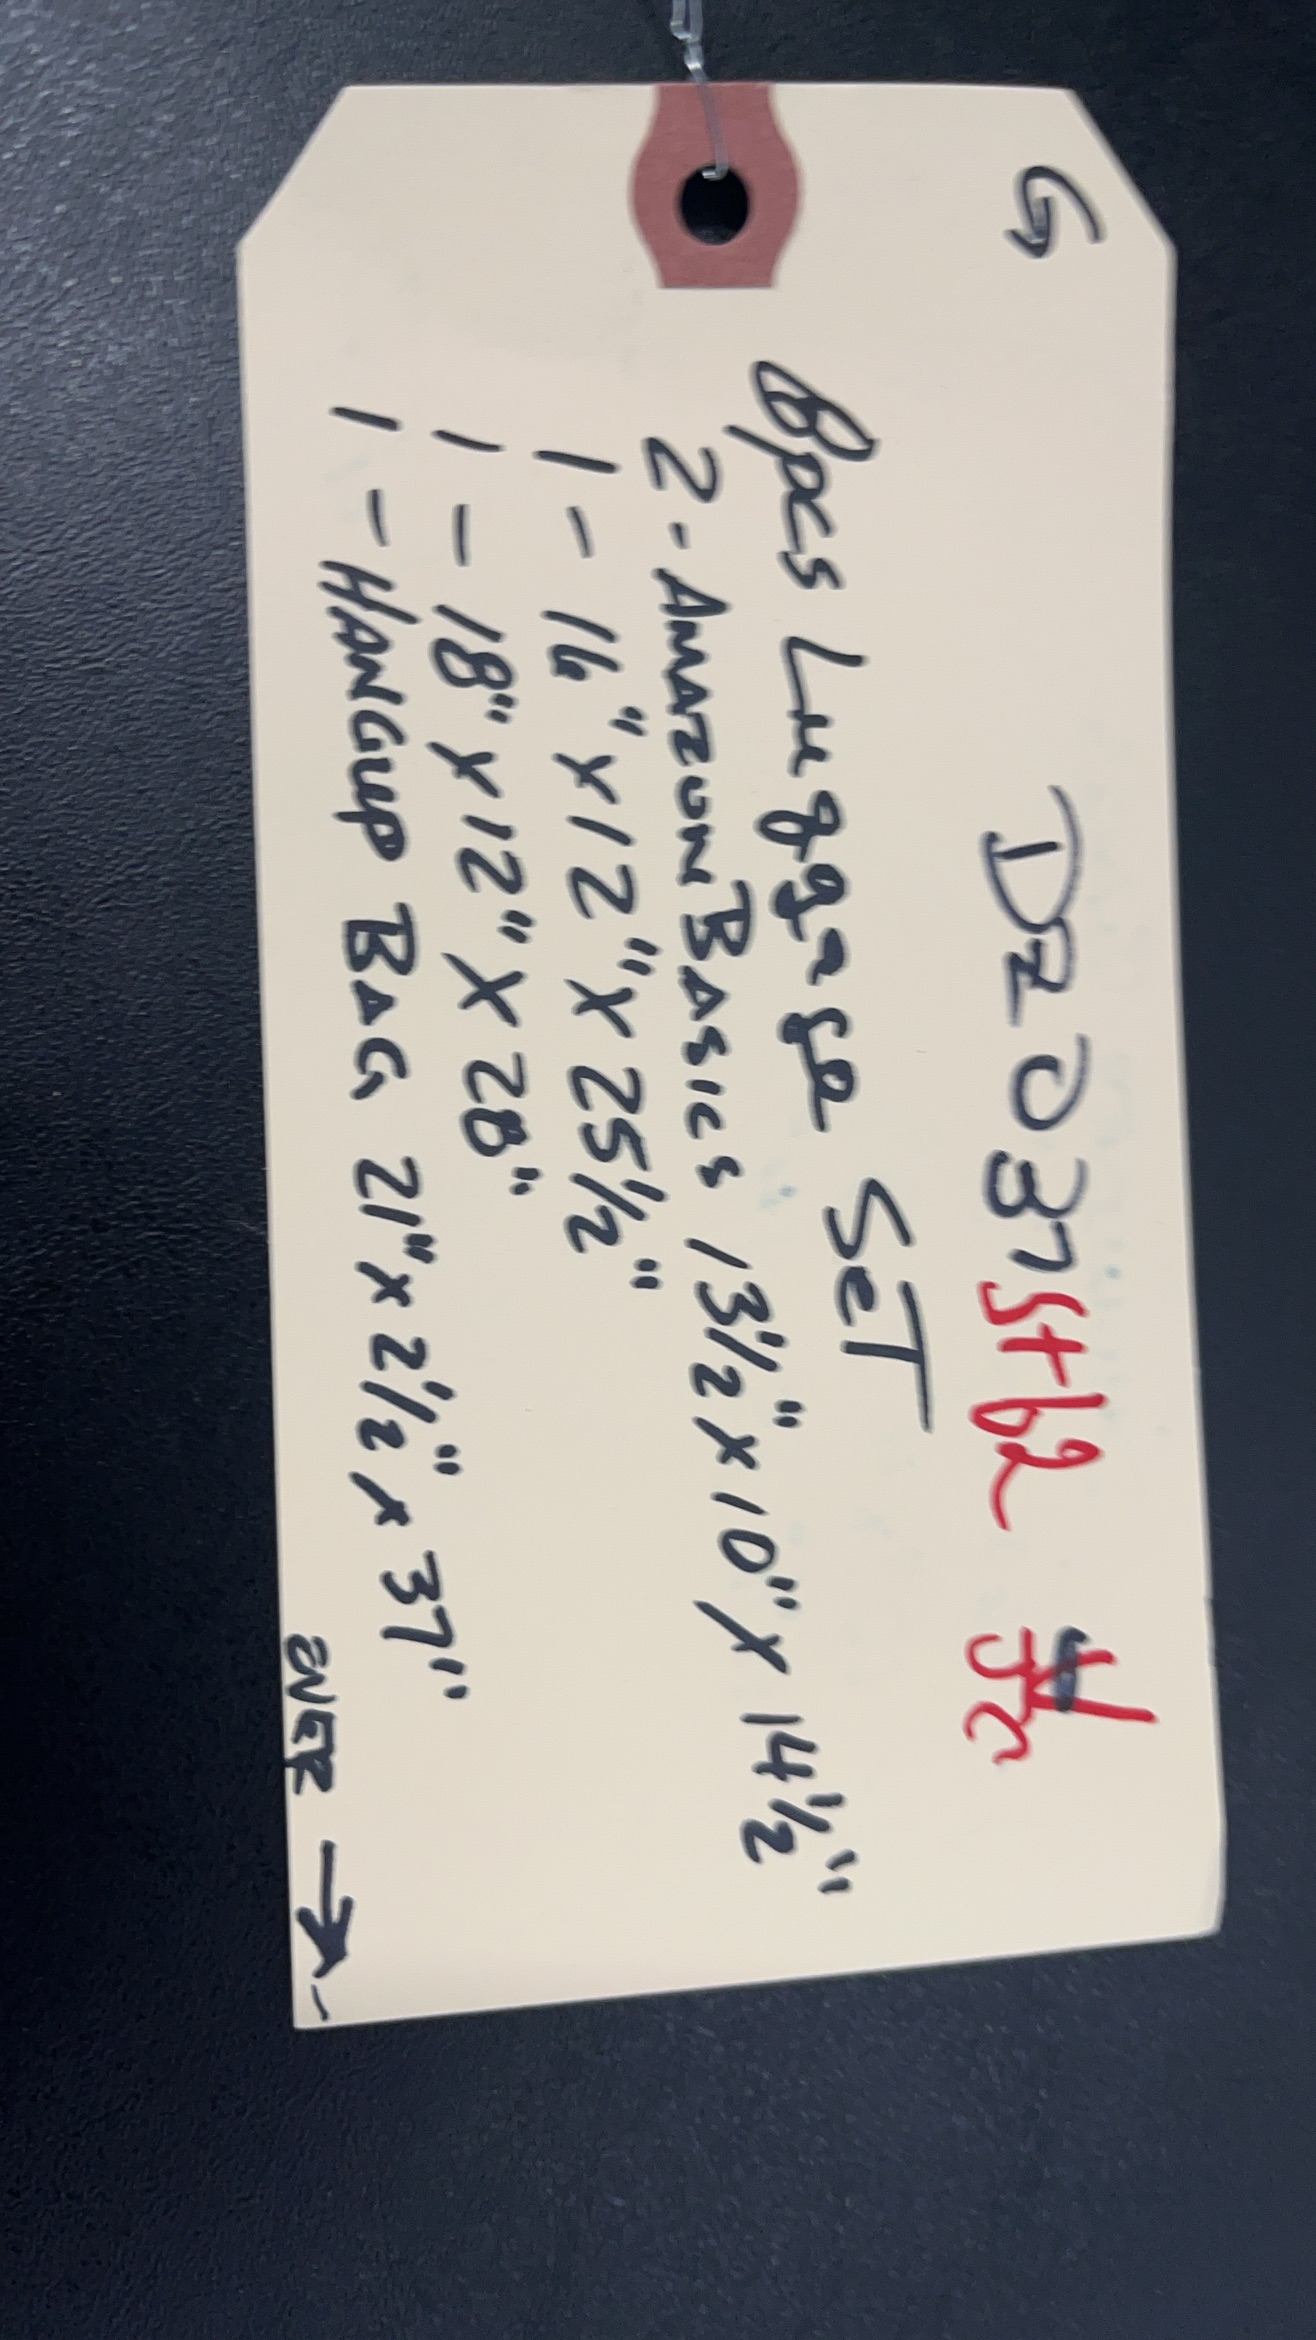 G
DZ037
8pcs Luggage SET
2 - AMAZON BASICS 13 1/2" x 10" x 14 1/2"
1 - 16" x 12" x 25 1/2"
1 - 18" x 12" x 28"
1 - HANGUP BAG 21" x 2 1/2" x 37"